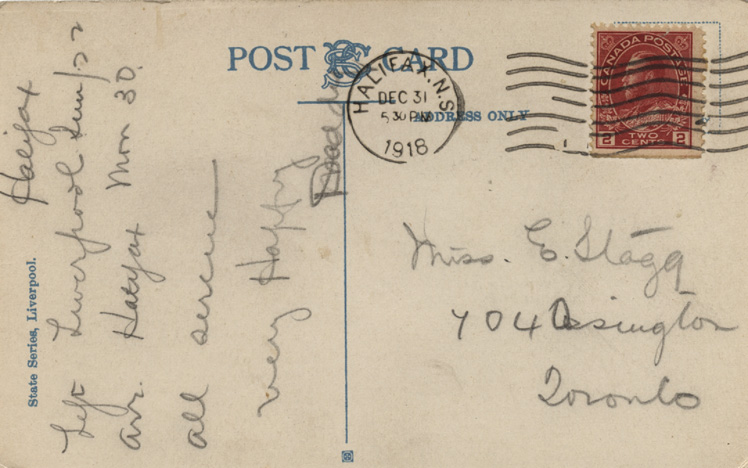 POST CARD
ADDRESS ONLY
HALIFAX. N.S
DEC 31
5 30 PM
1918
CANADA POSTAGE
2 TWO CENTS 2
Halifax
Left Liverpool Sun
arr. Halifax Mon 30.
all serene
very Happy
Miss. E. Stagg
704 Ossington
Toronto
State Series, Liverpool.